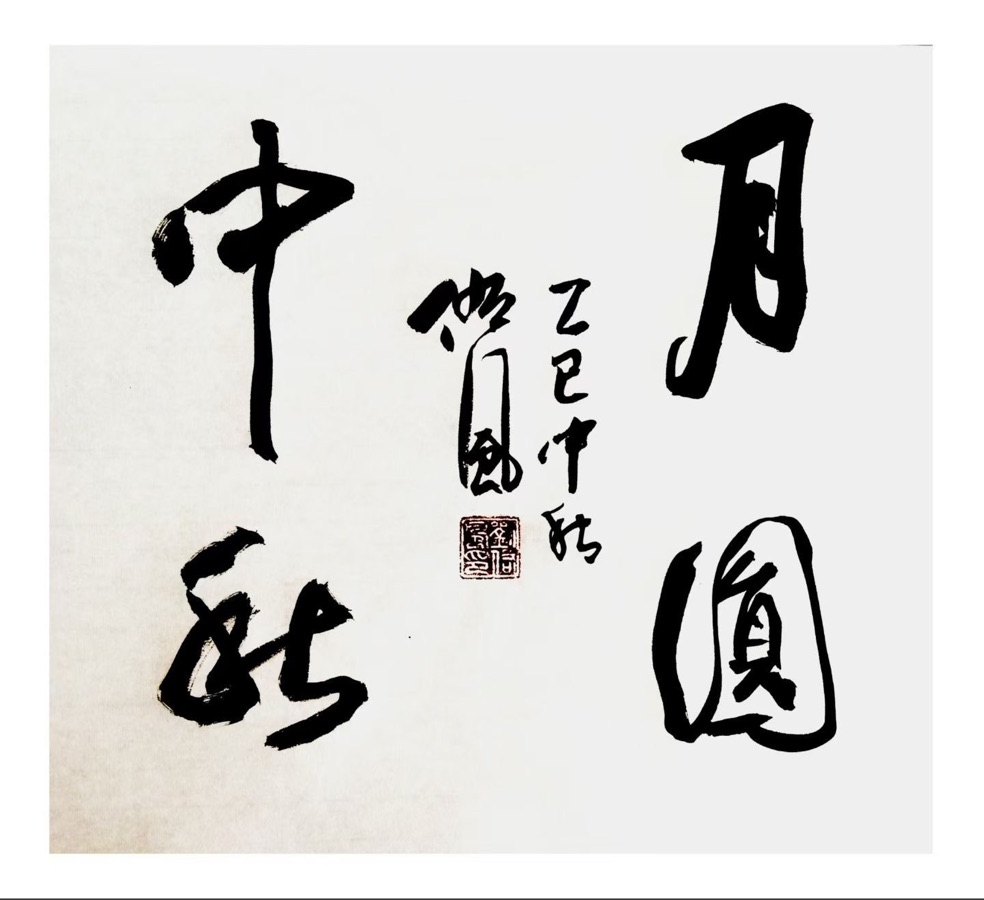 月圓
中秋
乙巳中秋